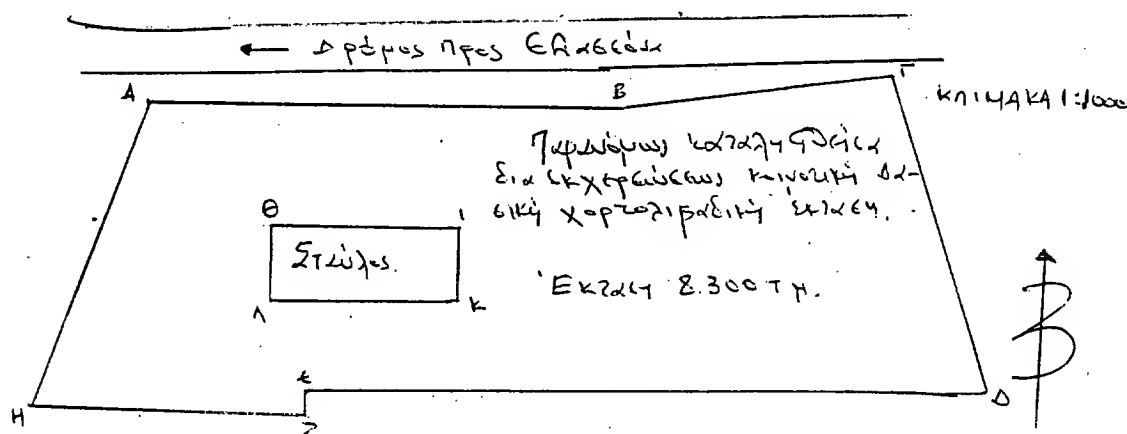 ← Δρόμος προς Ελασσόνα
Α Β Γ
ΚΛΙΜΑΚΑ 1:1000
Παρανόμως καταληφθείσα
δια εκχερσώσεως κοινοτική δα-
σική χορτολιβαδική έκταση.
Θ Ι
Σταύλος.
Έκταση 8.300 τμ.
Λ Κ
Β
Η Ζ Ε Δ